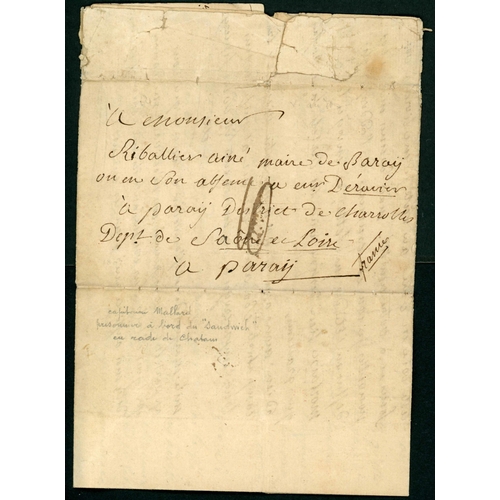 à Monsieur
Riballier ainé maire de Paraÿ
ou en son absence a eux Déravier
à paraÿ District de Charrolles
Dept. de Saône et Loire
à Paraÿ
france
capitaine Mallard
prisonnier à bord du "Sandwich"
en rade de Chatam